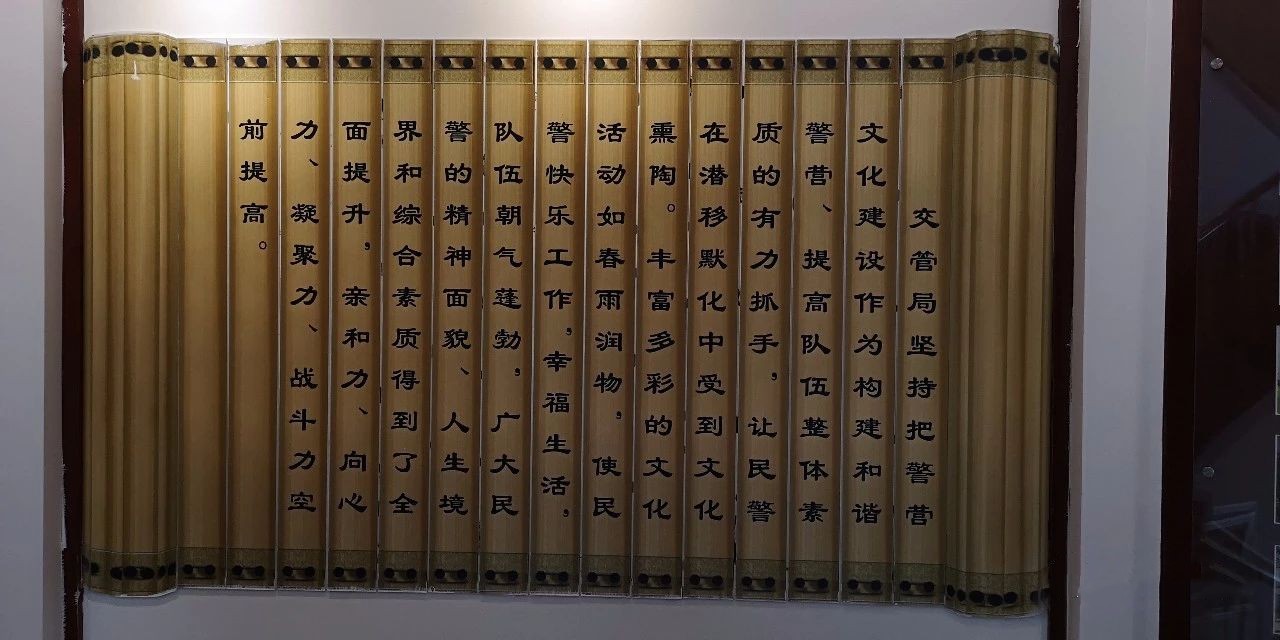 交管局坚持把警营
文化建设作为构建和谐
警营、提高队伍整体素
质的有力抓手，让民警
在潜移默化中受到文化
熏陶。丰富多彩的文化
活动如春雨润物，使民
警快乐工作，幸福生活，
队伍朝气蓬勃，广大民
警的精神面貌、人生境
界和综合素质得到了全
面提升，亲和力、向心
力、凝聚力、战斗力空
前提高。